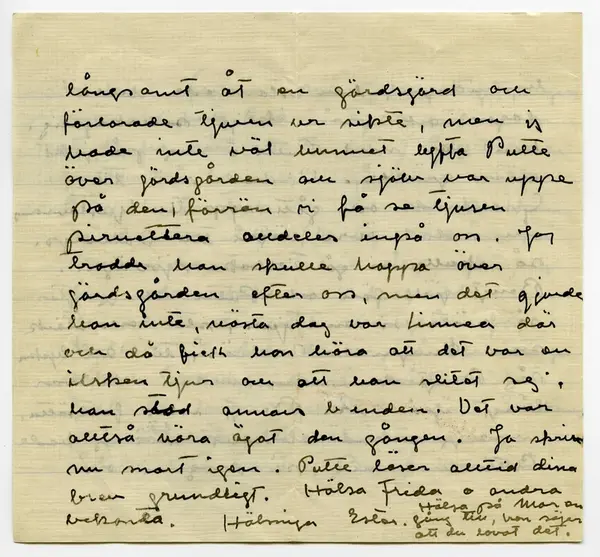 långsamt åt en gärdsgård och
förlorade tjuren ur sikte, men jag
hade inte väl hunnet lyfta Putte
över gärdsgården och själv var uppe
på den, förrän vi få se tjuren
piruettera alldeles inpå oss. Jag
trodde han skulle hoppa över
gärdsgården efter oss, men det gjorde
han inte, nästa dag var Linnea där
och då fick hon höra att det var en
ilsken tjur och att han slitet sej,
han stod annars bunden. Det var
alltså nära ögat den gången. Ja skriver
nu snart igen. Putte läser alltid dina
brev grundligt. Hälsa Frida o andra
bekanta. Hälsningar Ester.
Hälsa på Mor en
gång till, hon säger
att du lovat det.